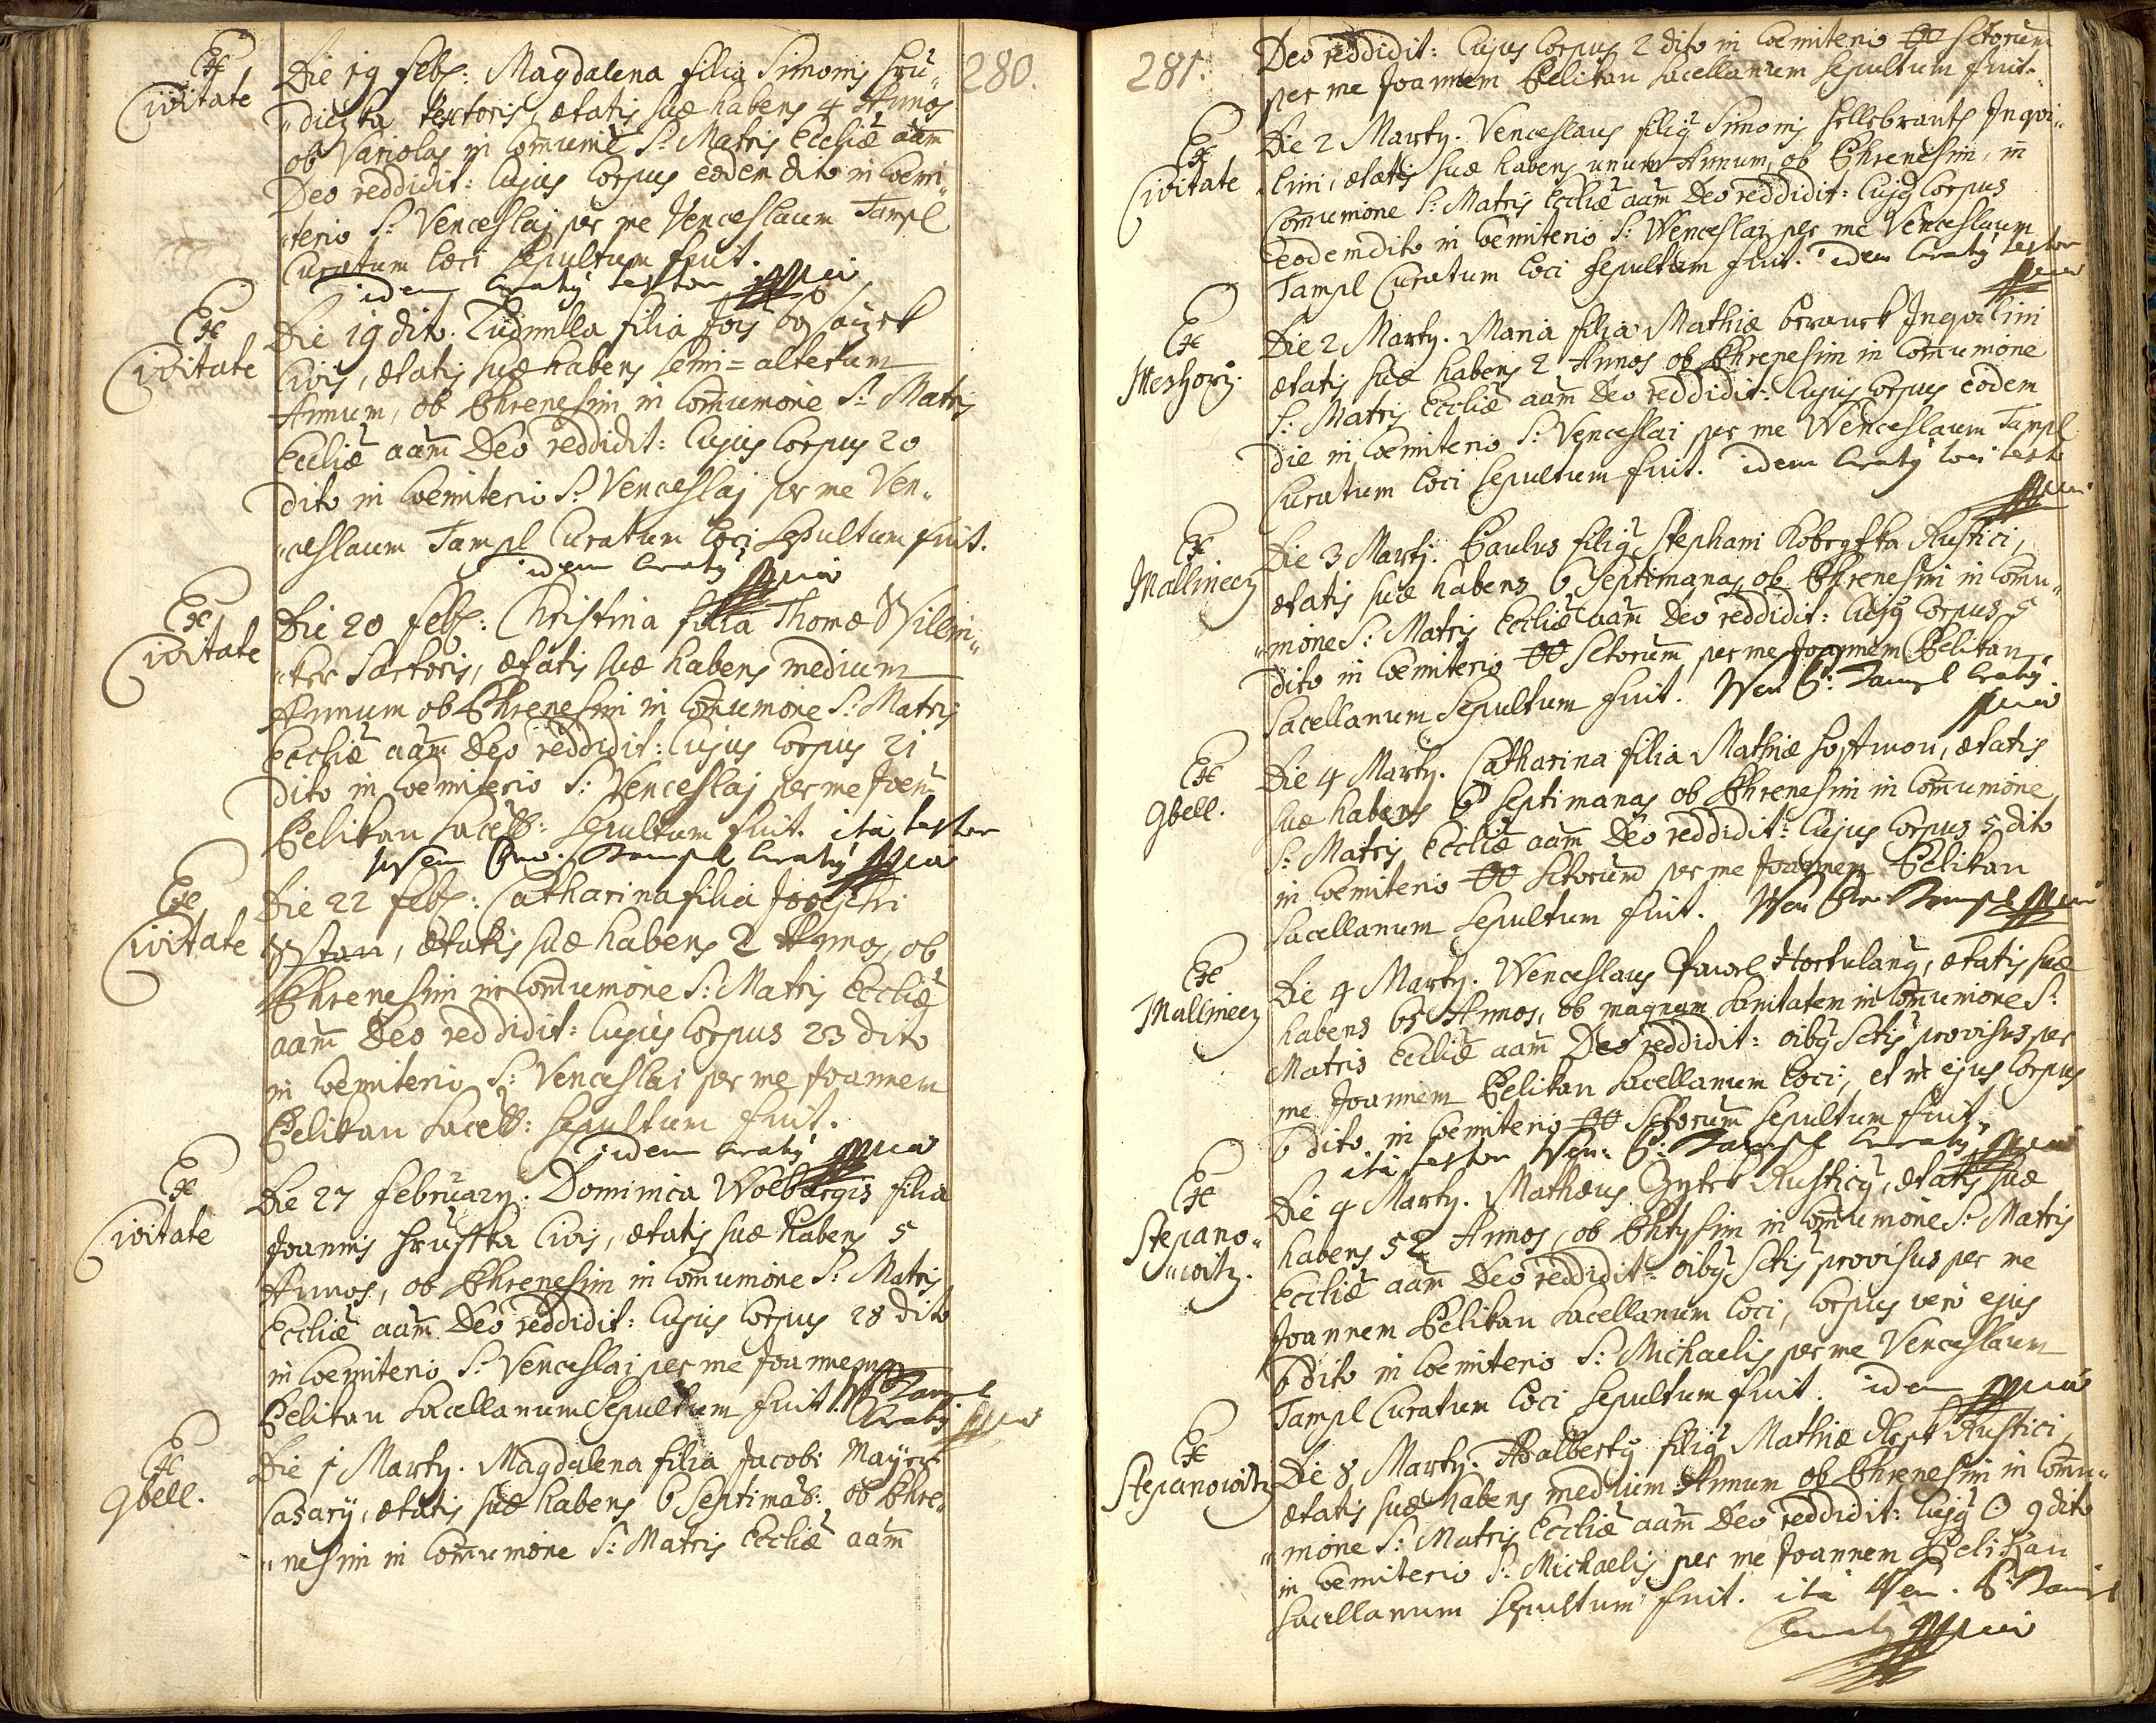 280.
Ex Civitate
Die 19 Feb: Magdalena filia Simonis Hru„
„diczka textoris, ætatis suæ habens 4 Annos
ob Variolas in Comunie S: Matris Eccliæ aam
Deo reddidit: Cujus Corpus eodem dito in Coemi„
„terio S: Venceslai per me Venceslaum Tampl
Curatum loci sepultum fuit.
idem Curaty testor mpria
Ex Civitate
Die 19 dito. Ludmilla filia Jois
Civis, ætatis suæ habens semi=alterum
Annum, ob Phrenesim in Comunione S: Matris
Eccliæ aam Deo reddidit: Cujus Corpus 20
dito in Coemiterio S: Venceslai per me Ven„
„ceslaum Tampl Curatum loci sepultum fuit.
idem Curaty mpria
Ex Civitate
Die 20 Feb: Christina filia Thomæ Willim„
„ker Sartoris, ætatis suæ habens medium
Annum ob Phrenesim in Comunione S: Matris
Eccliæ aam Deo reddidit: Cujus Corpus 21
dito in Coemiterio S: Venceslai per me Joem
Pelikan Sacell: sepultum fuit. ita testor
Wen Tampl Curaty mpria
Ex Civitate
Die 22 Feb: Catharina filia Josephi
, ætatis suæ habens 2 Annos, ob
Phrenesim in Comunione S: Matris Eccliæ
aam Deo reddidit: Cujus Corpus 23 dito
in Coemiterio S: Venceslai per me Joannem
Pelikan Sacell: sepultum fuit.
idem Curaty mpria
Ex Civitate
Die 27 February. Dominica Wolburgis filia
Joannis Hruska Civis, ætatis suæ habens 5
Annos, ob Phrenesim in Comunione S: Matris
Eccliæ aam Deo reddidit: Cujus Corpus 28 dito
in Coemiterio S: Venceslai per me Joannem
Pelikan Sacellanum sepultum fuit. W Tampl
Curaty mpria
Ex Gbell.
Die 1 Marty. Magdalena filia Jacobi Mayer
Casary, ætatis suæ habens 6 Septimas: ob Phre„
„nesim in Comunione S: Matris Eccliæ aam
281.
Deo reddidit: Cujus Corpus 2 dito in Coemiterio OO Sctorum
per me Joannem Pelikan Sacellanum sepultum fuit.
Ex Civitate
Die 2 Marty. Venceslaus filiy Simonis Hellebrant Inqvi„
„lini, ætatis suæ habens unum Annum, ob Phrenesim, in
Comunione S: Matris Eccliæ aam Deo reddidit: Cujy Corpus
eodem dito in Coemiterio S: Wenceslai per me Venceslaum
Tampl Curatum loci sepultum fuit. idem Curaty testor
mpria
Ex Meshorz.
Die 2 Marty. Maria filia Mathiæ Beranek Inqvilini
ætatis suæ habens 2 Annos ob Phrenesim in Comunione
S: Matris Eccliæ aam Deo reddidit: Cujus Corpus eodem
die in Coemiterio S: Venceslai per me Wenceslaum Tampl
Curatum loci sepultum fuit. idem Curaty loci testor
mpria
Ex Mallinecz
Die 3 Marty. Paulus filiy Stephani Kobrgska Rustici,
ætatis suæ habens 6 Septimanas ob Phrenesim in Comu„
„nione S: Matris Eccliæ aam Deo reddidit: Cujy Corpus 5
dito in Coemiterio OO Sctorum per me Joannem Pelikan
Sacellanum sepultum fuit. Wen P: Tampl Curaty
mpria
Ex Gbell.
Die 4 Marty. Catharina filia Mathiæ Hoffmon, ætatis
suæ habens 6 Septimanas ob Phrenesim in Comunione
S: Matris Eccliæ aam Deo reddidit: Cujus Corpus 5 dito
in Coemiterio OO Sctorum per me Joannem Pelikan
Sacellanum sepultum fuit. Wen Tampl mpria
Ex Mallinecz
Die 4 Marty. Wenceslaus Pawel Hortulany, ætatis suæ
habens 65 Annos, ob magnam Sanitatem in Comunione S:
Matris Eccliæ aam Deo reddidit: oiby Sctis provisus per
me Joannem Pelikan Sacellanum loci, et in ejus Corpus
6 dito in Coemiterio OO Sctorum sepultum fuit.
ita testor Wen: P: Tampl Curaty mpria
Ex Stepano„
„witz.
Die 4 Marty. Mathæus Rusticy, ætatis suæ
habens 52 Annos, ob Phtysim in Comunione S: Matris
Eccliæ aam Deo reddidit: oiby Sctis provisus per me
Joannem Pelikan Sacellanum loci, Corpus vero ejus
6 dito in Coemiterio S: Michaelis per me Venceslaum
Tampl Curatum loci sepultum fuit. idem mpria
Ex Stepanowitz
Die 8 Marty. Adalberty filiy Mathiæ Rustici,
ætatis suæ habens medium Annum ob Phrenesim in Comu„
„nione S: Matris Eccliæ aam Deo reddidit: Cujy C 9 dito
in Coemiterio S: Michaelis per me Joannem Pelikan
Sacellanum sepultum fuit. ita Wen. P: Tampl
Curaty mpria